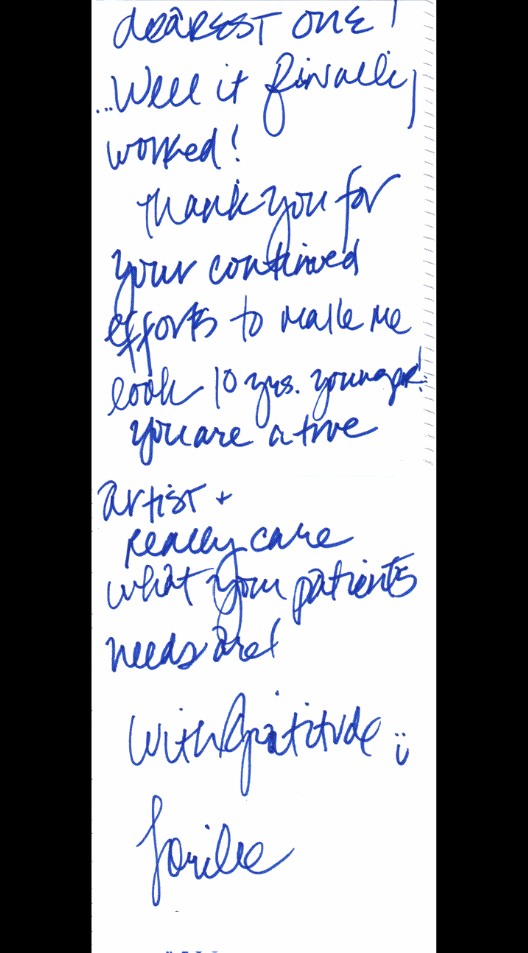 dearest one!
...Well it finally
worked!
thank you for
your continued
efforts to make me
look 10 yrs. younger!
you are a true
artist +
really care
what your patients
needs are!
With Gratitude